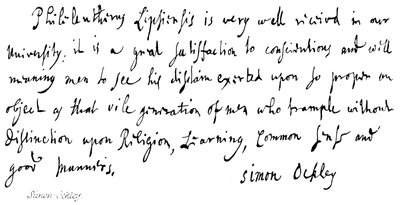 Phileleutherus Lipsiensis is very well reciv'd in our
University. it is a great satisfaction to conscientious and well
meaning men to see his disdain exerted upon so proper an
object as that vile generation of men who trample without
Distinction upon Religion, Learning, Common sense and
good manners.
Simon Ockley
Simon Ockley.